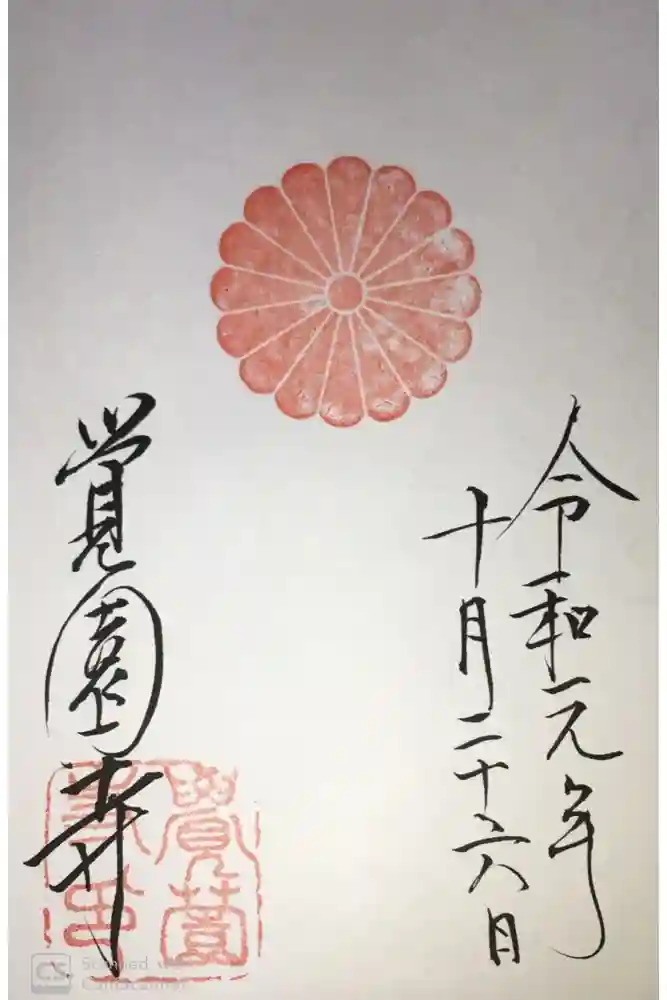 令和元年
十月二十六日
覺園寺
覺園
寺印
CS Scanned with
CamScanner